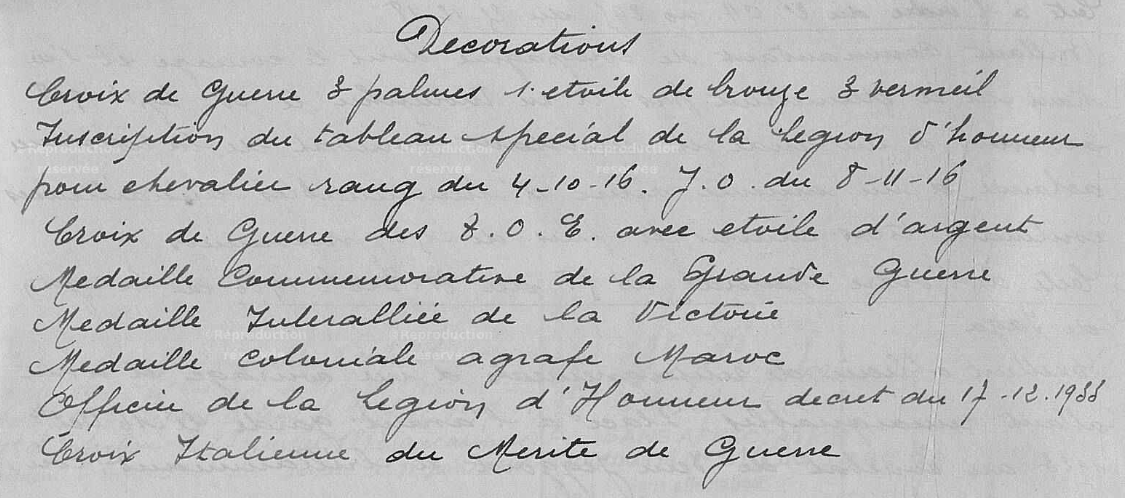 Decorations
Croix de Guerre 3 palmes 1 etoile de bronze 3 vermeil
Inscription du tableau special de la Legion d'honneur
pour chevalier rang du 4-10-16. J.O. du 8-11-16
Croix de Guerre des T.O.E. avec etoile d'argent
Medaille Commemorative de la Grande Guerre
Medaille Interalliée de la Victoire
Medaille coloniale agrafe Maroc
Officier de la Legion d'Honneur decret du 17-12.1933
Croix Italienne du Merite de Guerre